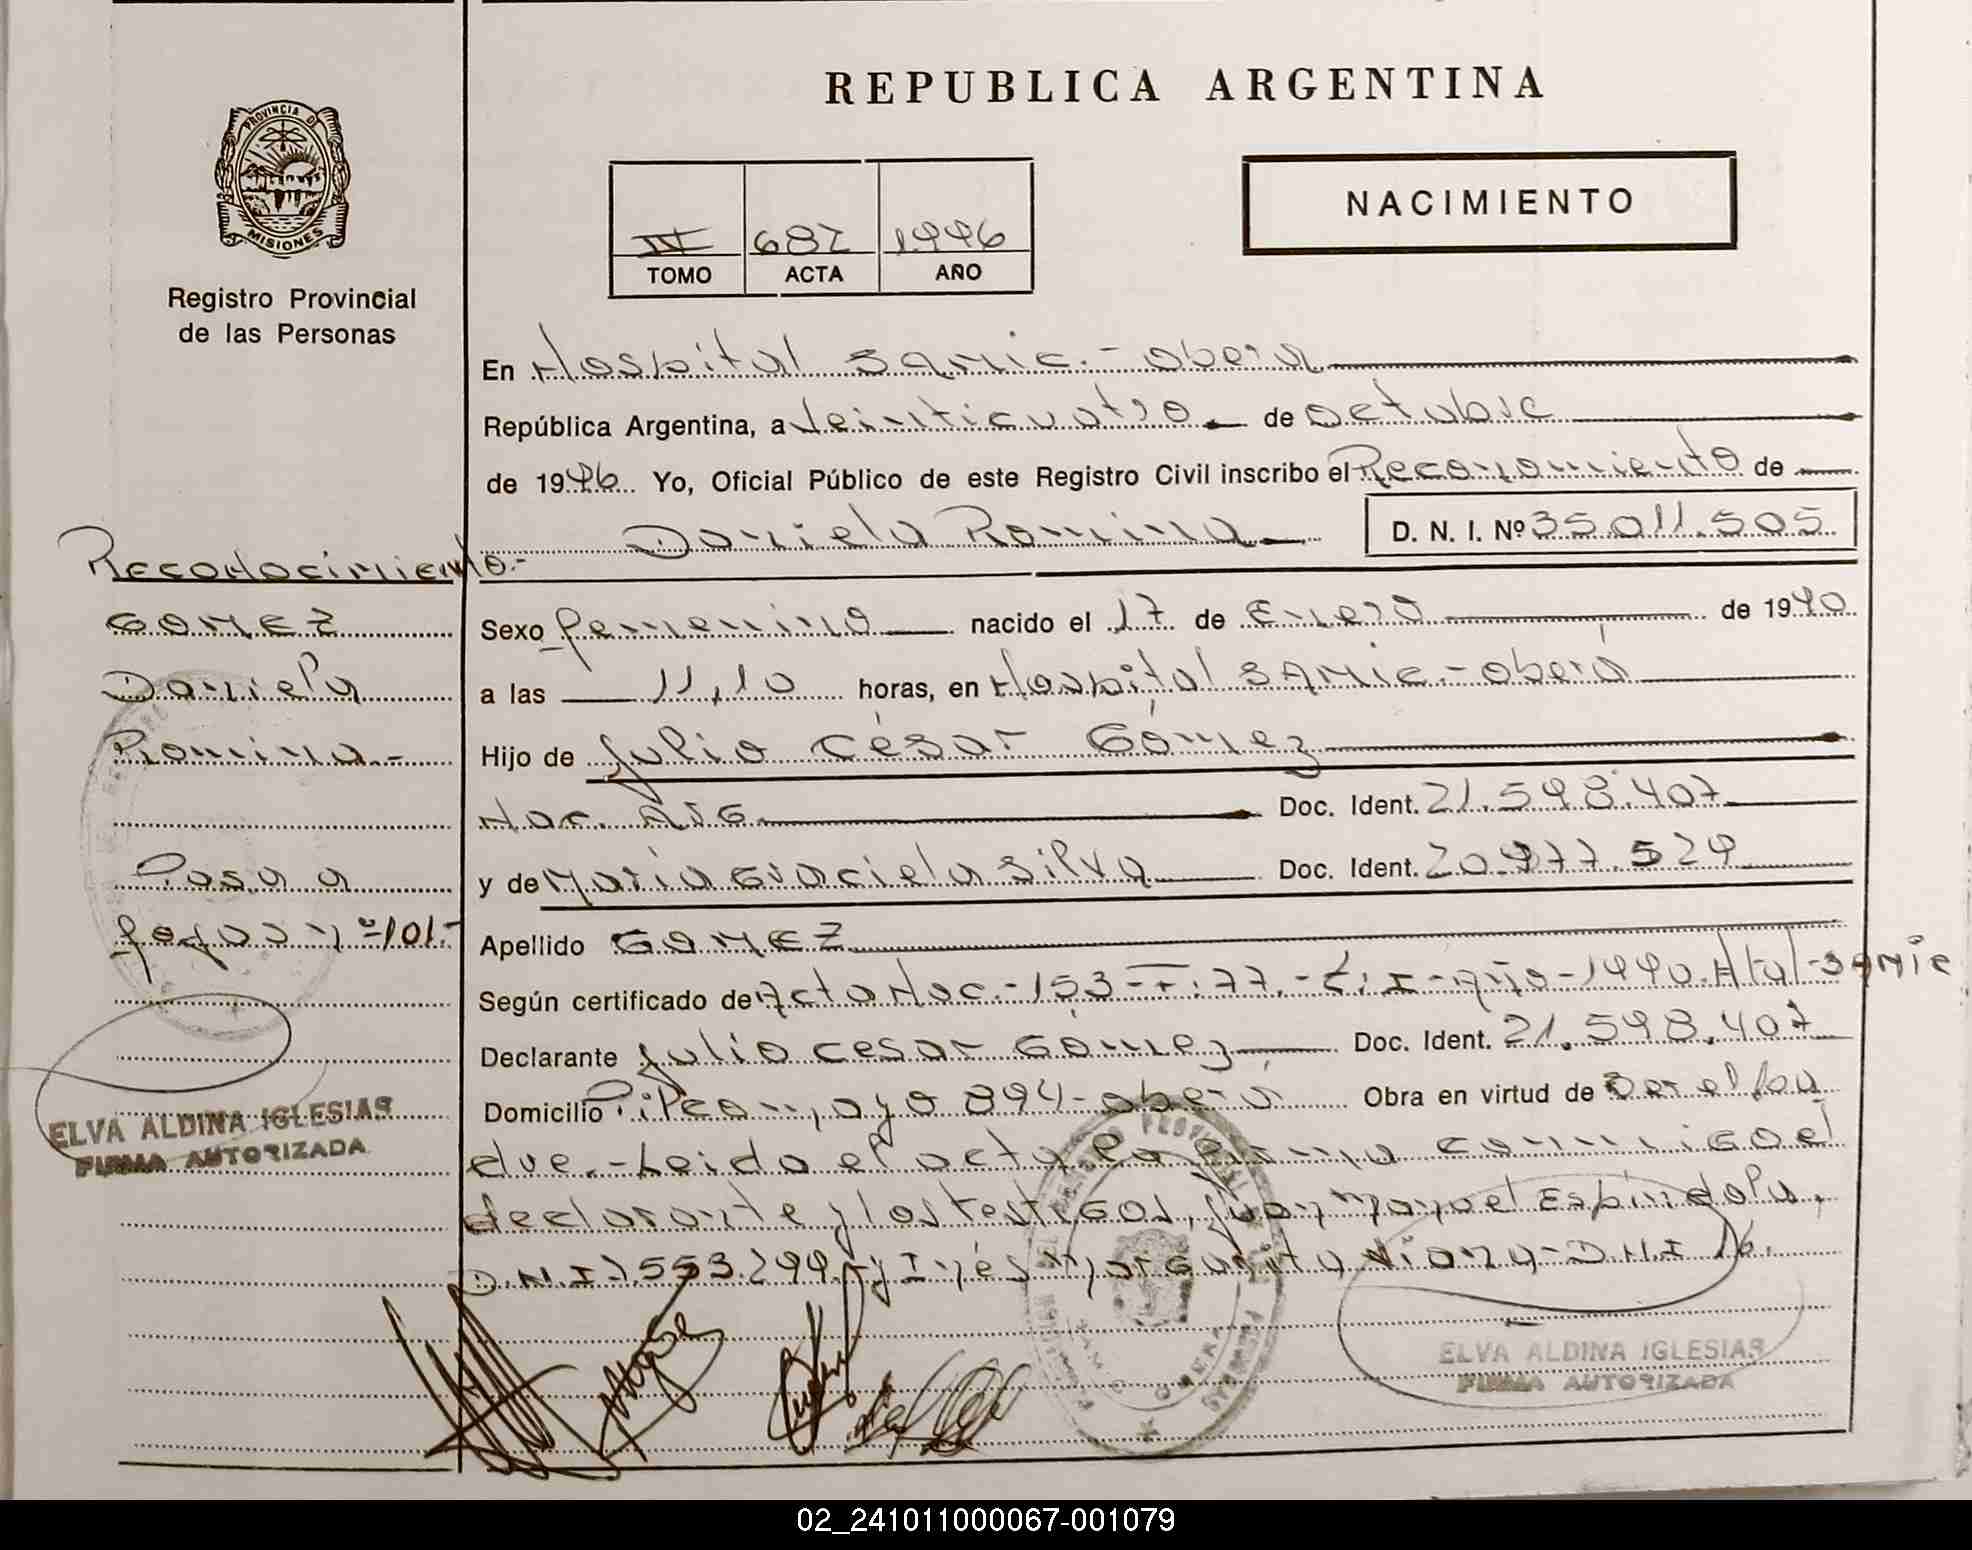 REPUBLICA ARGENTINA
PROVINCIA DE
MISIONES
Registro Provincial
de las Personas
NACIMIENTO
687 1996
TOMO ACTA AÑO
En Hospital SAMIC.- Oberá
República Argentina, a Veinticuatro de Octubre
de 1996 Yo, Oficial Público de este Registro Civil inscribo el de
Daniela Romina D. N. I. Nº 35.011.505.
Reconocimiento.-
GOMEZ
Daniela
Romina.-
Pasa a
Nº 101.-
ELVA ALDINA IGLESIAS
FIRMA AUTORIZADA
Sexo femenino nacido el 17 de Enero de 1990
a las 11,10 horas, en Hospital SAMIC.- Oberá
Hijo de Julio César Gómez
Nac. ARG. Doc. Ident. 21.598.407
y de María Graciela Silva Doc. Ident. 20.977.529
Apellido GOMEZ
Según certificado de Acta Nac.- 153 - F: 77.- T: I - Año - 1990. Htal - SAMIC
Declarante Julio Cesar Gómez Doc. Ident. 21.598.407
Domicilio Pilcomayo 894 - Oberá Obra en virtud de Ser el pa
dre.- Leído el acta la firma conmigo el
declarante y los testigos, Juan Manuel Espíndola,
D.N.I 7.553.299.- y Inés Margarita - D.N.I
ELVA ALDINA IGLESIAS
FIRMA AUTORIZADA
02_241011000067-001079